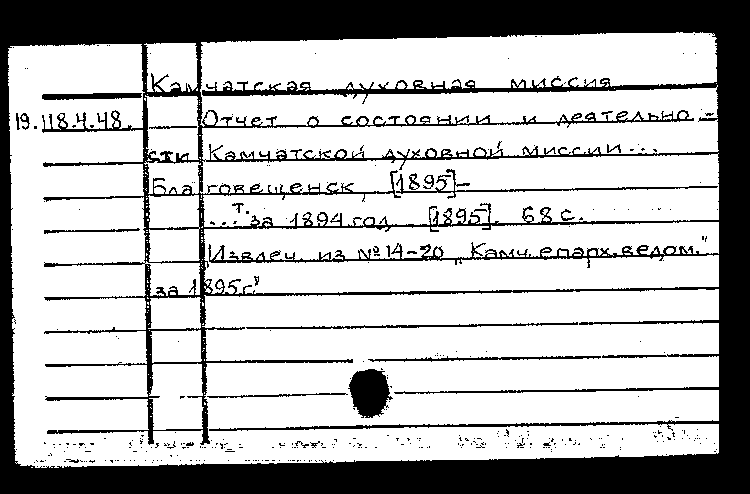 Камчатская духовная миссия
19.118.4.48. Отчет о состоянии и деятельно-
сти Камчатской духовной миссии...
Благовещенск, [1895]-
...т. за 1894 год. [1895]. 68 с.
Извлеч. из №14-20 „Камч. епарх. ведом."
за 1895 г."